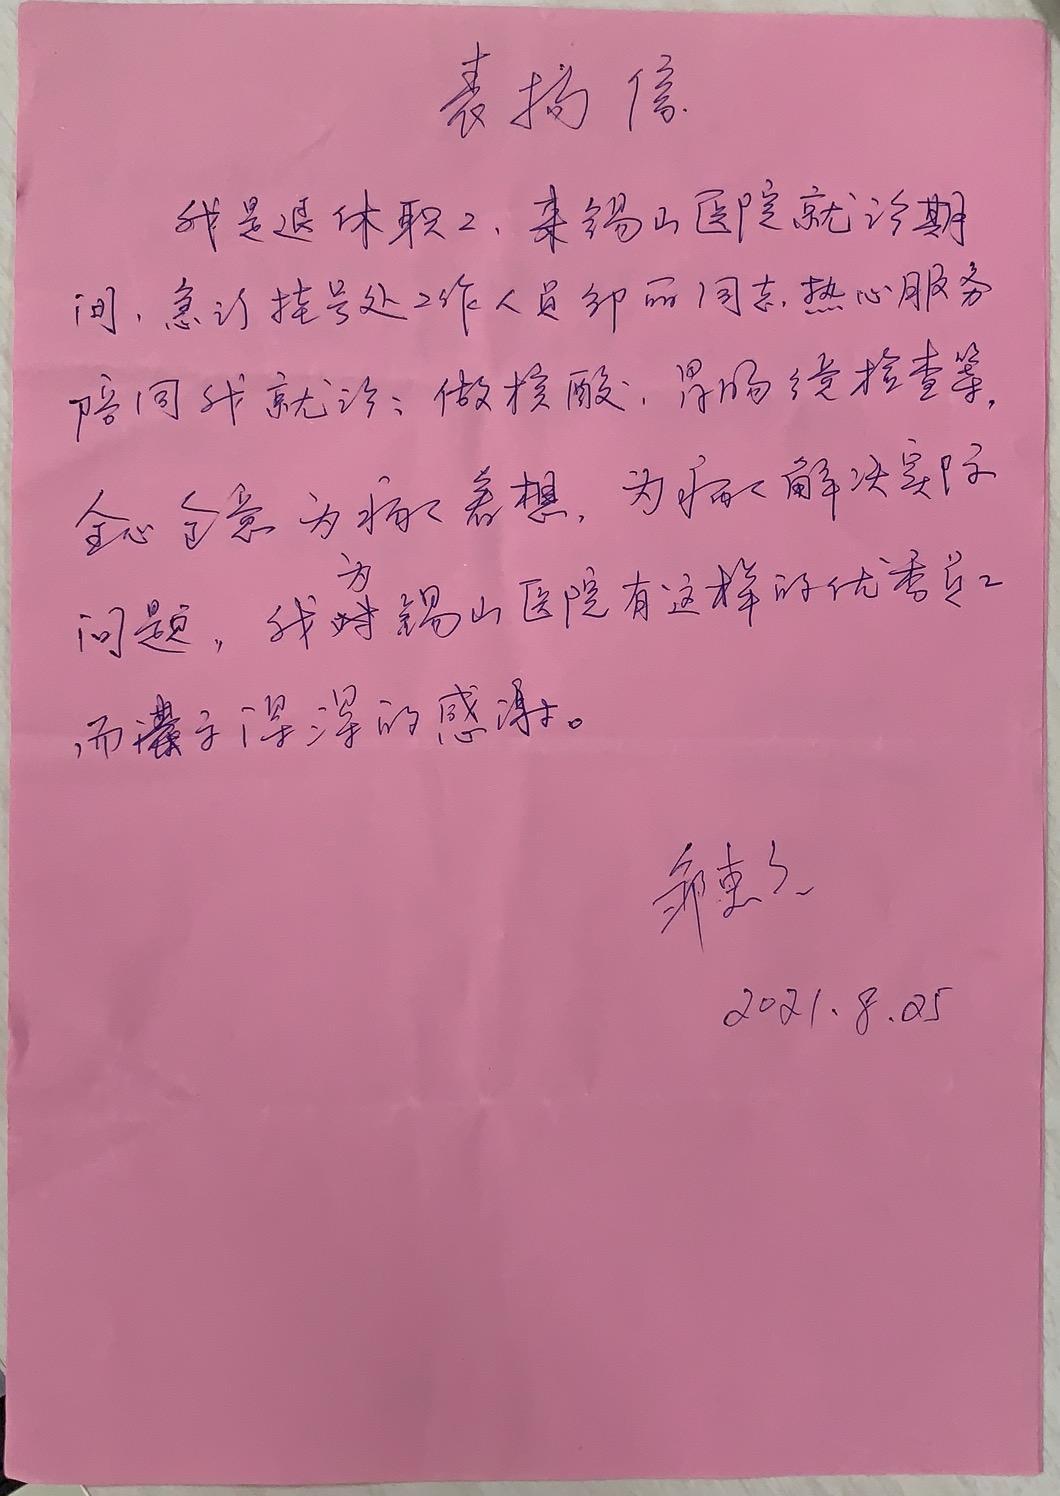 表扬信
我是退休职工、来锡山医院就诊期
间，急诊挂号处工作人员邹丽同志，热心服务
陪同我就诊；做核酸；胃肠镜检查等，
全心全意为病人着想，为病人解决实际
问题，我为锡山医院有这样的优秀员工
而表示深深的感谢。
2021.8.25